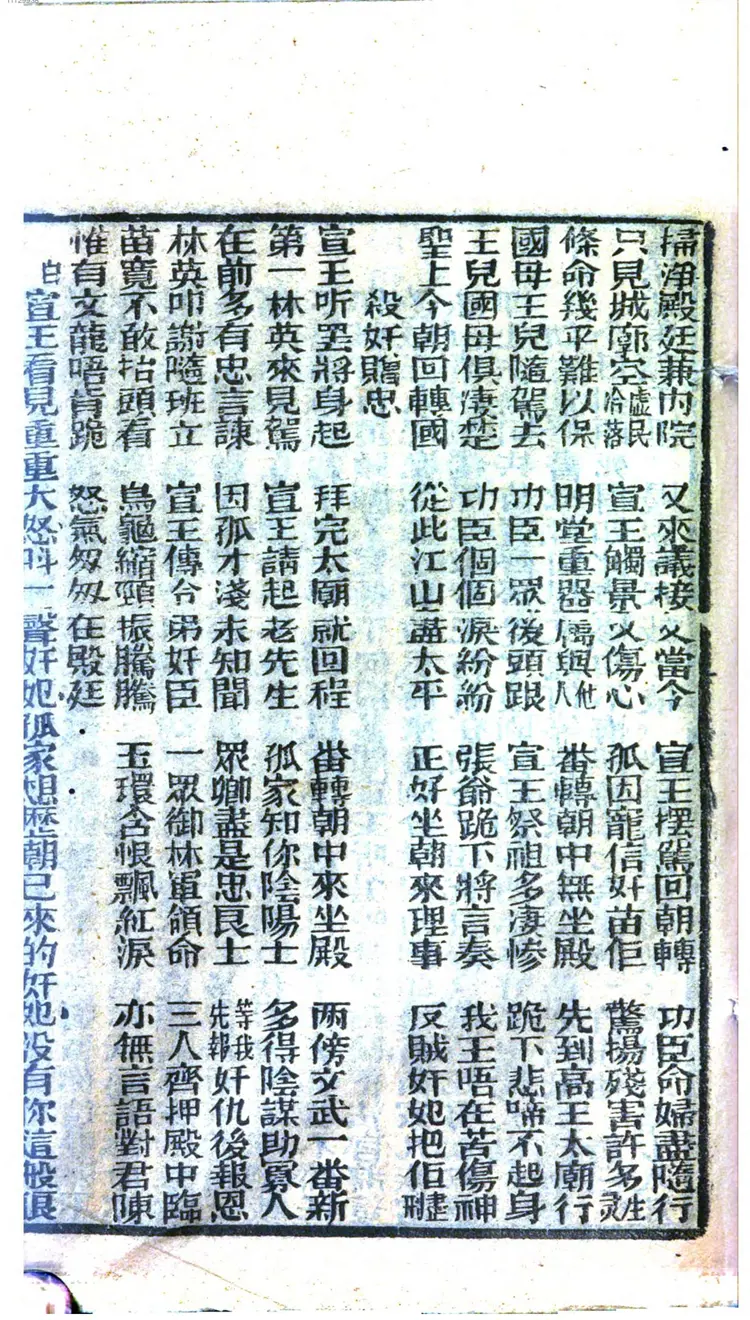 掃淨殿廷兼內院 又來議接父當今 宣王摆駕回朝轉 功臣命婦盡隨行
只見城廓空虛民冷落 宣王觸景又傷心 孤因寵信奸苗佢 驚揚殘害許多生灵
條命幾乎難以保 明堂重器屬與他人 番轉朝中無坐殿 先到高王太廟行
國母王兒隨駕去 功臣一眾後頭跟 宣王祭祖多凄惨 跪下悲啼不起身
王兒國母俱凄楚 功臣個個淚紛紛 張爺跪下將言奏 我王唔在苦傷神
聖上今朝回轉國 從此江山盡太平 正好坐朝來理事 反賊奸妃把佢盡刑
殺奸贈忠
宣王听罢將身起 拜完太廟就回程 番轉朝中來坐殿 兩傍文武一番新
第一林英來見駕 宣王請起老先生 孤家知你陰陽士 多得陰謀助寡人
在前多有忠言諫 因孤才淺未知聞 眾卿盡是忠良士 等我先報奸仇後報恩
林英叩謝隨班立 宣王傳令弟奸臣 一眾御林軍領命 三人齊押殿中臨
苗寬不敢抬頭看 烏龜縮頸振騰騰 玉環含恨飄紅淚 亦無言語對君陳
惟有文龍唔肯跪 怒氣匆匆在殿廷
白 宣王看見重重大怒叫一聲奸妃孤家想歷朝已來的奸妃没有你這般狠